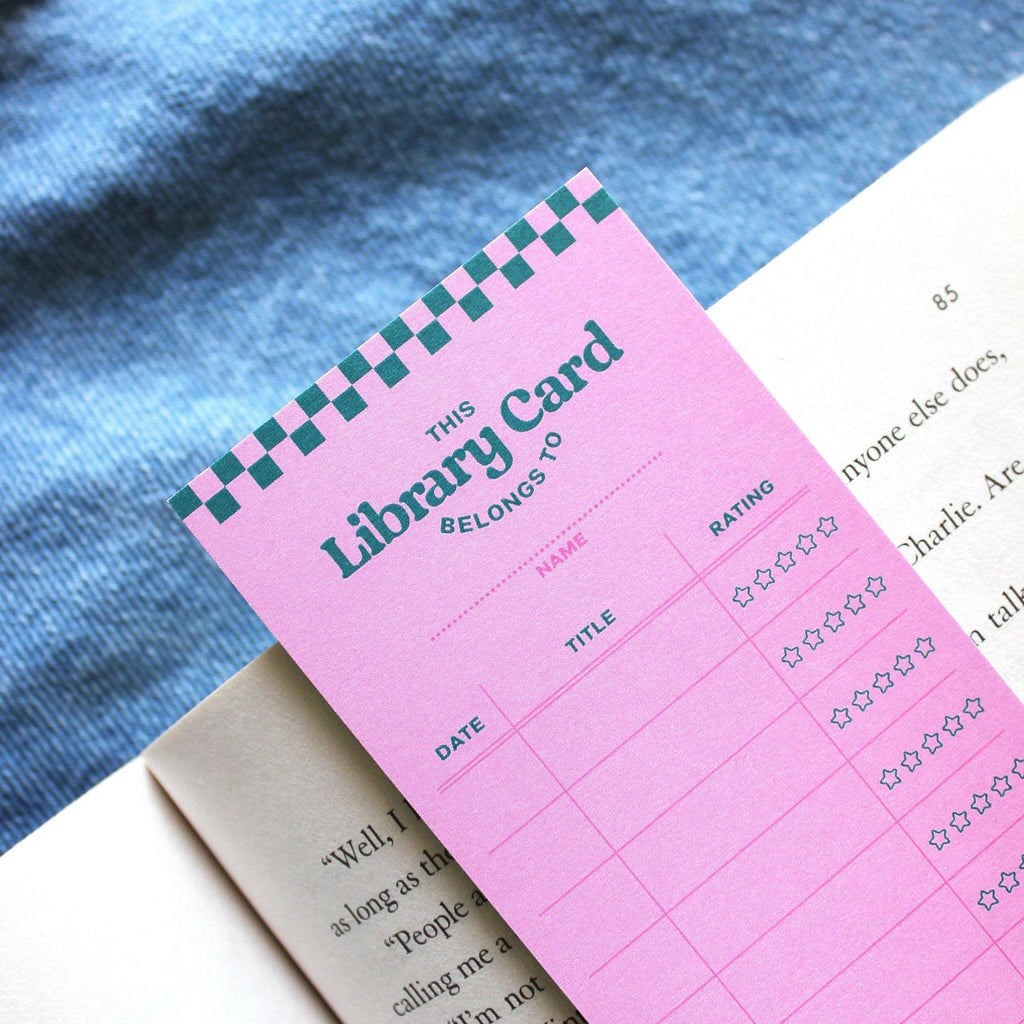 THIS
Library Card
BELONGS TO
NAME
DATE TITLE RATING
85
else does,
Charlie. Are
talk
“Well, I
as long as the
“People
calling me a
“I’m not